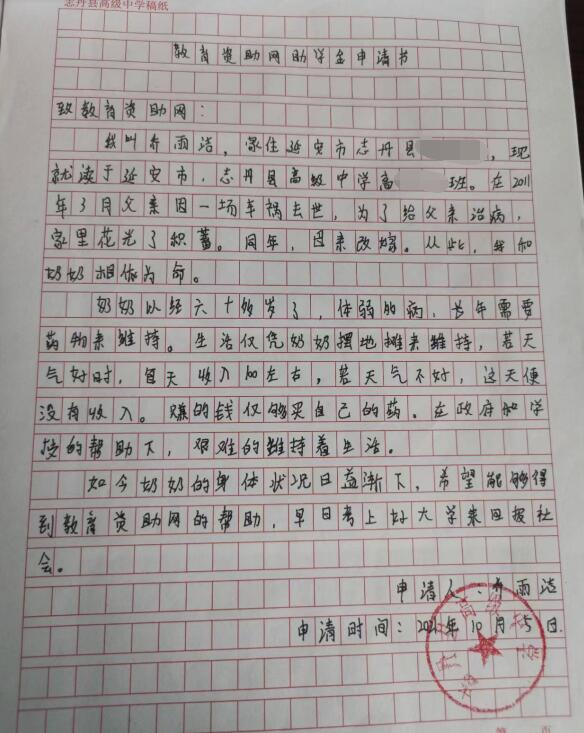 志丹县高级中学稿纸
教育资助网助学金申请书
致教育资助网：
我叫乔雨洁，家住延安市志丹县，现
就读于延安市，志丹县高级中学高班。在2011
年3月父亲因一场车祸去世，为了给父亲治病，
家里花光了积蓄。同年，母亲改嫁。从此，我和
奶奶相依为命。
奶奶以经六十多岁了，体弱多病，长年需要
药物来维持。生活仅凭奶奶摆地摊来维持，若天
气好时，每天收入100左右，若天气不好，这天便
没有收入。赚的钱仅够买自己的药。在政府和学
校的帮助下，艰难的维持着生活。
如今奶奶的身体状况日益渐下，希望能够得
到教育资助网的帮助，早日考上好大学来回报社
会。
申请人：乔雨洁
申请时间：2021年10月15日.
第 页